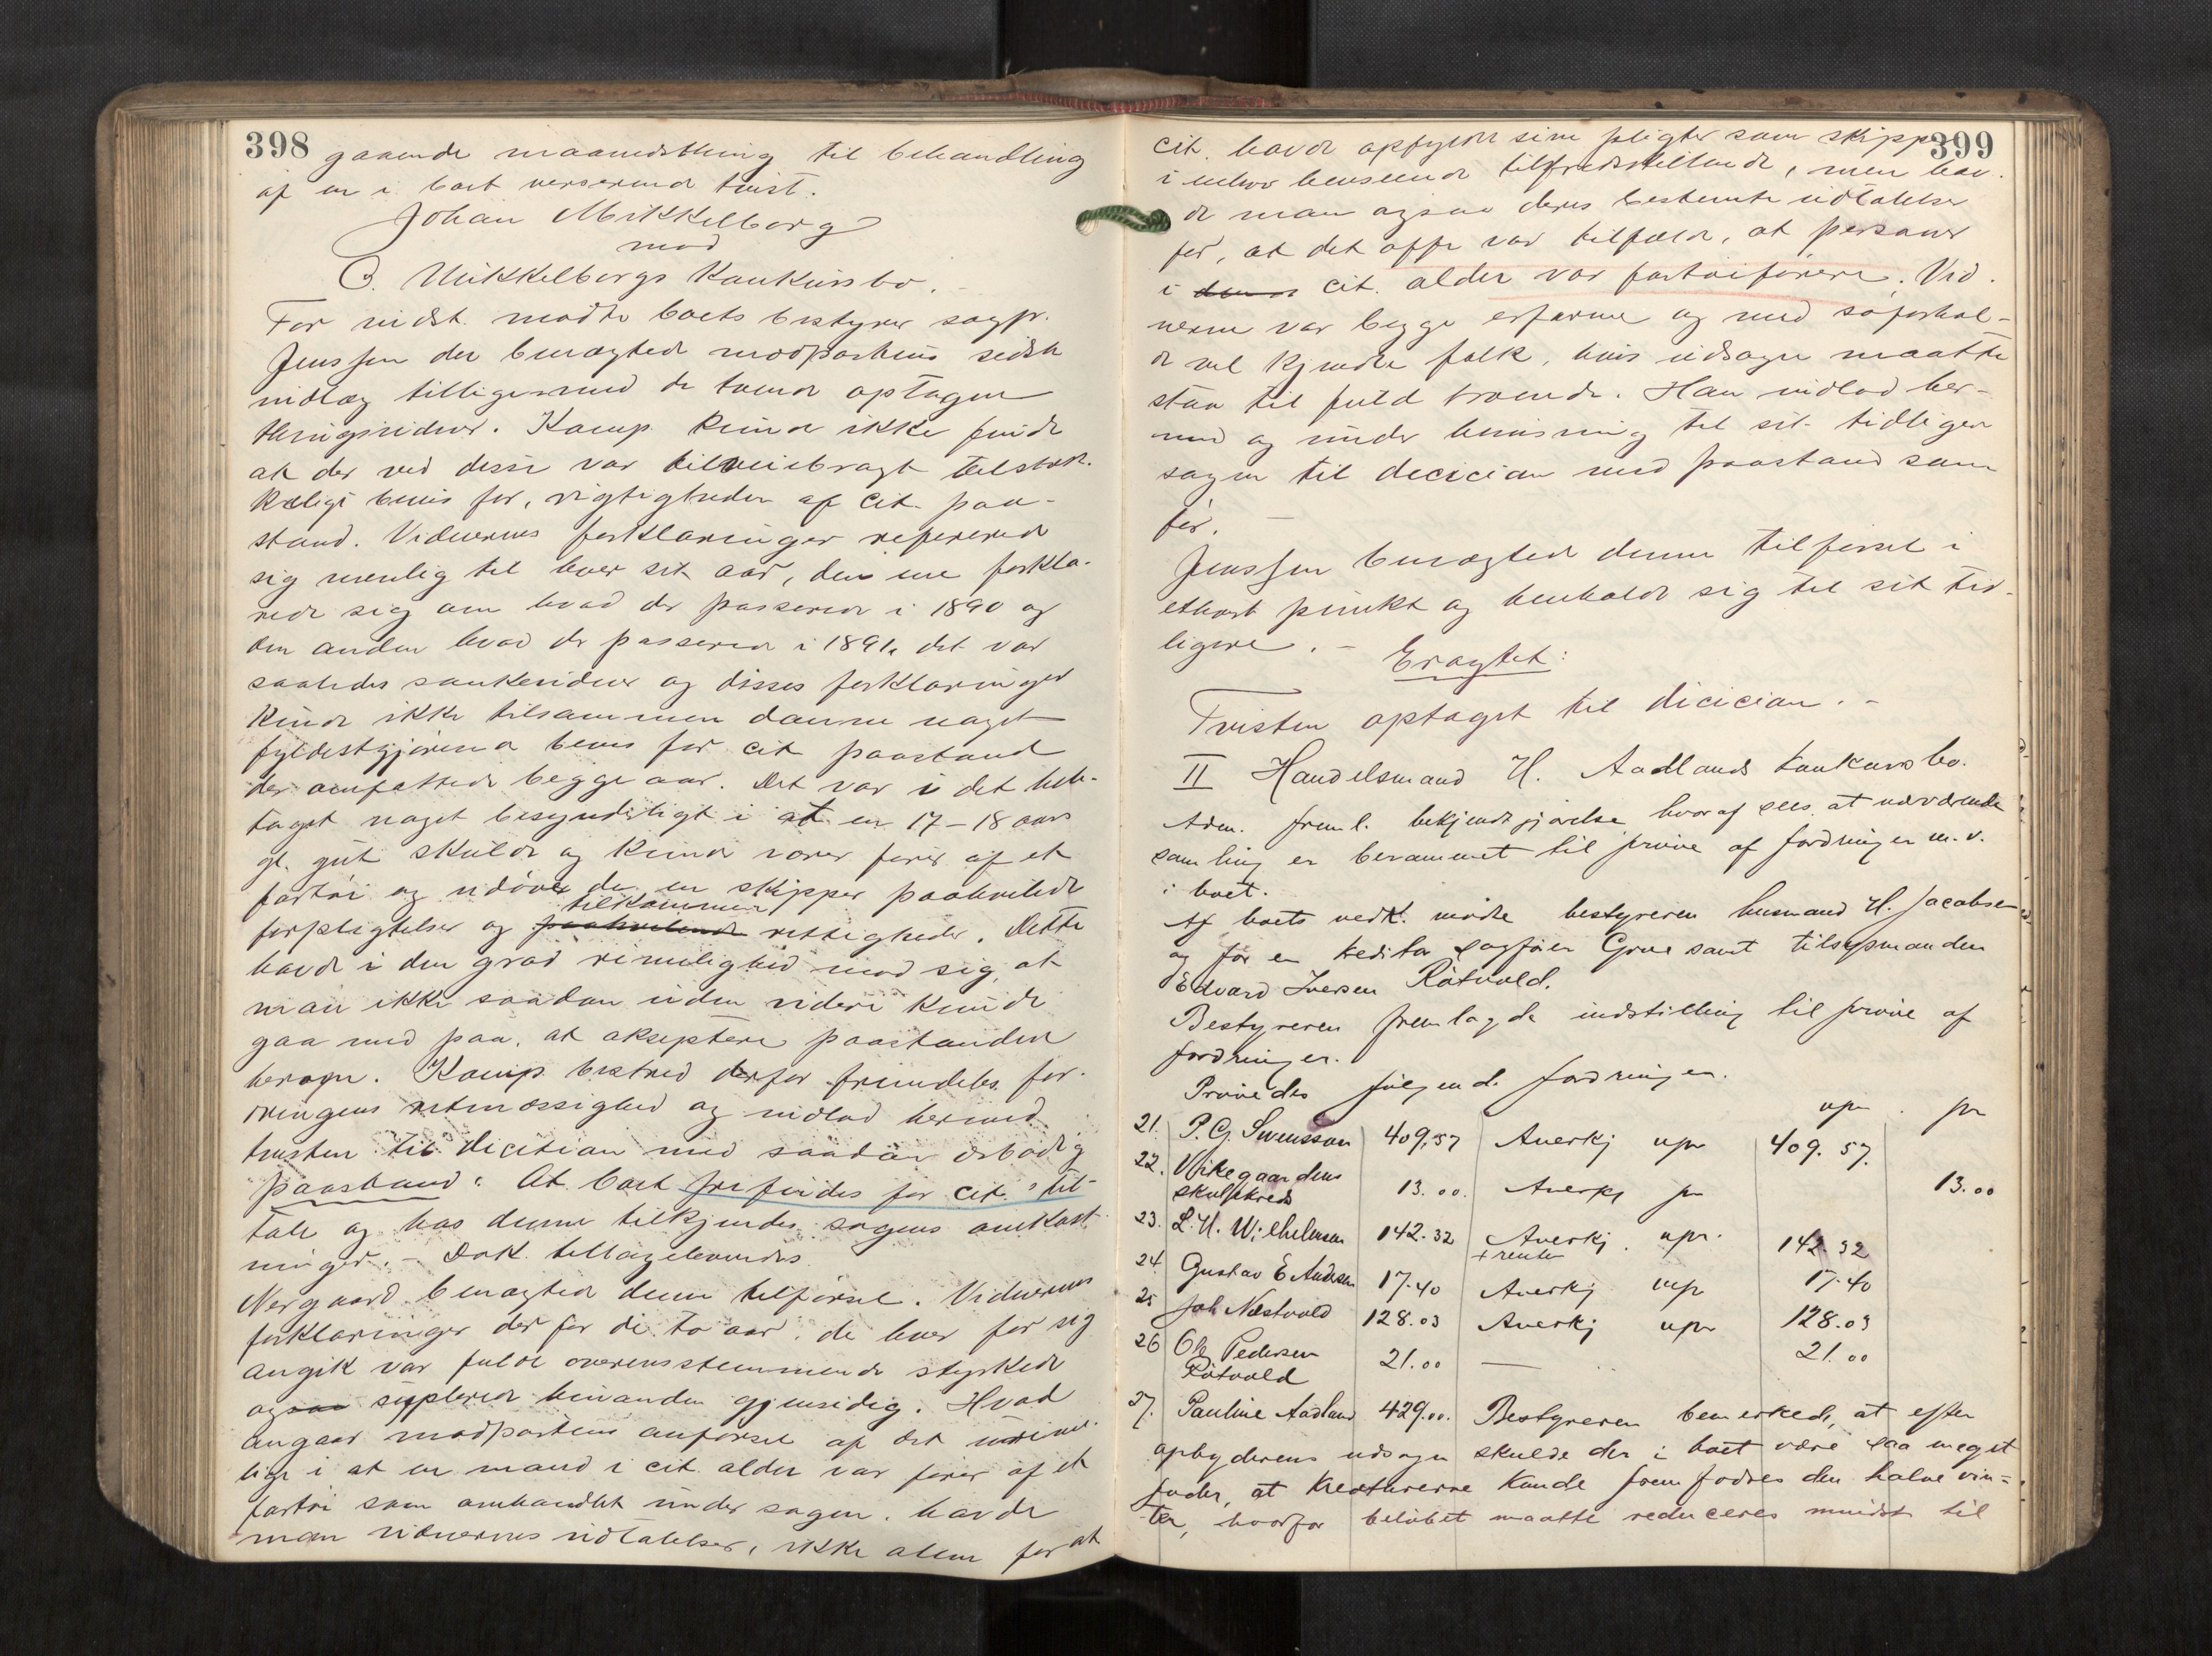 398
gaaende maanedsthing til behandling
af en i boet verserende tvist.
Johan Mikkelborg
mod
C. Mikkelborgs Konkursbo.
For indst. mødte boets bestyrer sagf.
Jenssen der benægted modpartens sidste
indlæg tilligemed de tvende optagne
thingsvidner. Komp. kunde ikke finde
at der ved disse var tilveiebragt tilstræk-
keligt bevis for, rigtigheden af cit. paa-
stand. Vidnernes forklaringer refererede
sig nemlig til hver sit aar, den ene forkla-
rede sig om hvad der passerede i 1890 og
den anden hvad der passerede i 1891, det var
saaledes enkeltvidner og disses forklaringer
kunde ikke tilsammen danne noget
fyldestgjørende bevis for cit paastand
der omfattede begge aar. Det var i det hele
taget noget besynderligt i at en 17-18 aars
gl. gut skulde og kunde være fører af et
fartøi og udøve de en skipper paahvilede
tilkommende
forpligtelser og paahvilende rettigheder. Dette
havde i den grad rimelighed mod sig, at
man ikke saadan uden videre kunde
gaa med paa, at akseptere paastanden
herom. Komp. bestred derfor fremdeles for-
dringens retmæssighed og indlod hermed
tvisten til decition med saadan ærbødig
paastand: At boet frifindes for cit. til-
tale og hos denne tilkjendes sagens omkost-
ninger. - Dok. tillageleveredes
Nergaard benægted denne tilførsel. Vidnernes
forklaringer der for de to aar, de hver for sig
angik var fuldt overensstemmende styrkede
ogsaa suplered hinanden gjensidig. Hvad
angaar modpartens anførsel af det urime-
lige i at en mand i cit. alder var fører af et
fartøi som omhandlet under sagen, havde
man vidnernes udtalelser, ikke alene for at
399
cit. havde opfyldt sine pligter som skipper
i enhver henseende tilfredsstillende, men hav-
de man ogsaa deres bestemte udtalelse
for, at det ofte var tilfælde, at personer
i denne cit. alder var fartøiførere. Vid-
nerne var begge erfarne og med søforhol-
de vel kjendte folk, hvis udsagn maatte
staa til fuld troende. Han indlod her-
med og under henvisning til sit tidligere
sagen til decicion med paastand som
før. -
Jenssen benægted denne tilførsel i
ethvert punkt og henholdt sig til sit tid-
ligere. -
Eragtet:
Tvisten optaget til dicicion. -
II Handelsmand H. Aadlands konkursbo.
Adm. freml. bekjendtgjørelse hvoraf sees at nærværende
samling er berammet til prøve af fordringer m.v.
i boet.
Af boets vedk. mødte bestyreren husmand H. Jacobsen
og for en kreditor sagfører Grove samt tilsynsmanden
Edvard Iversen Røtvold.
Bestyreren fremlagde indstilling til prøve af
fordringer.
Prøvedes følgende fordringer.
upr pr
21. P. G. Svensson 409,57 Anerkj upr 409.57.
22. Vikegaardens
skolekreds 13.00. Anerkj pr 13.00
23. L. H. Wilhelmsen 142.32 Anerkj. upr. 142.32
+ renter
24. Gustav E Andersen 17.40 Anerkj upr 17.40
25 Joh Næstvold 128.03 Anerkj upr 128.03
26 Ole Pedersen
Røtvold 21.00 — 21.00
27. Pauline Aadland 429.00. Bestyreren bemerkede, at efter
opbyderens udsagn skulde der i boet være saa meget
foder, at kreaturerne kunde fremfodres den halve vin-
ter, hvorfor beløbet maatte reduceres mindst til